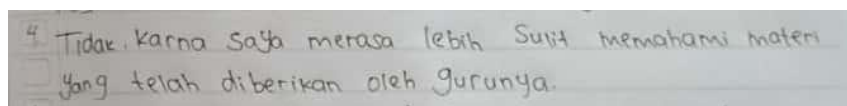 4 Tidak, karna saya merasa lebih Sulit memahami materi
yang telah diberikan oleh gurunya.